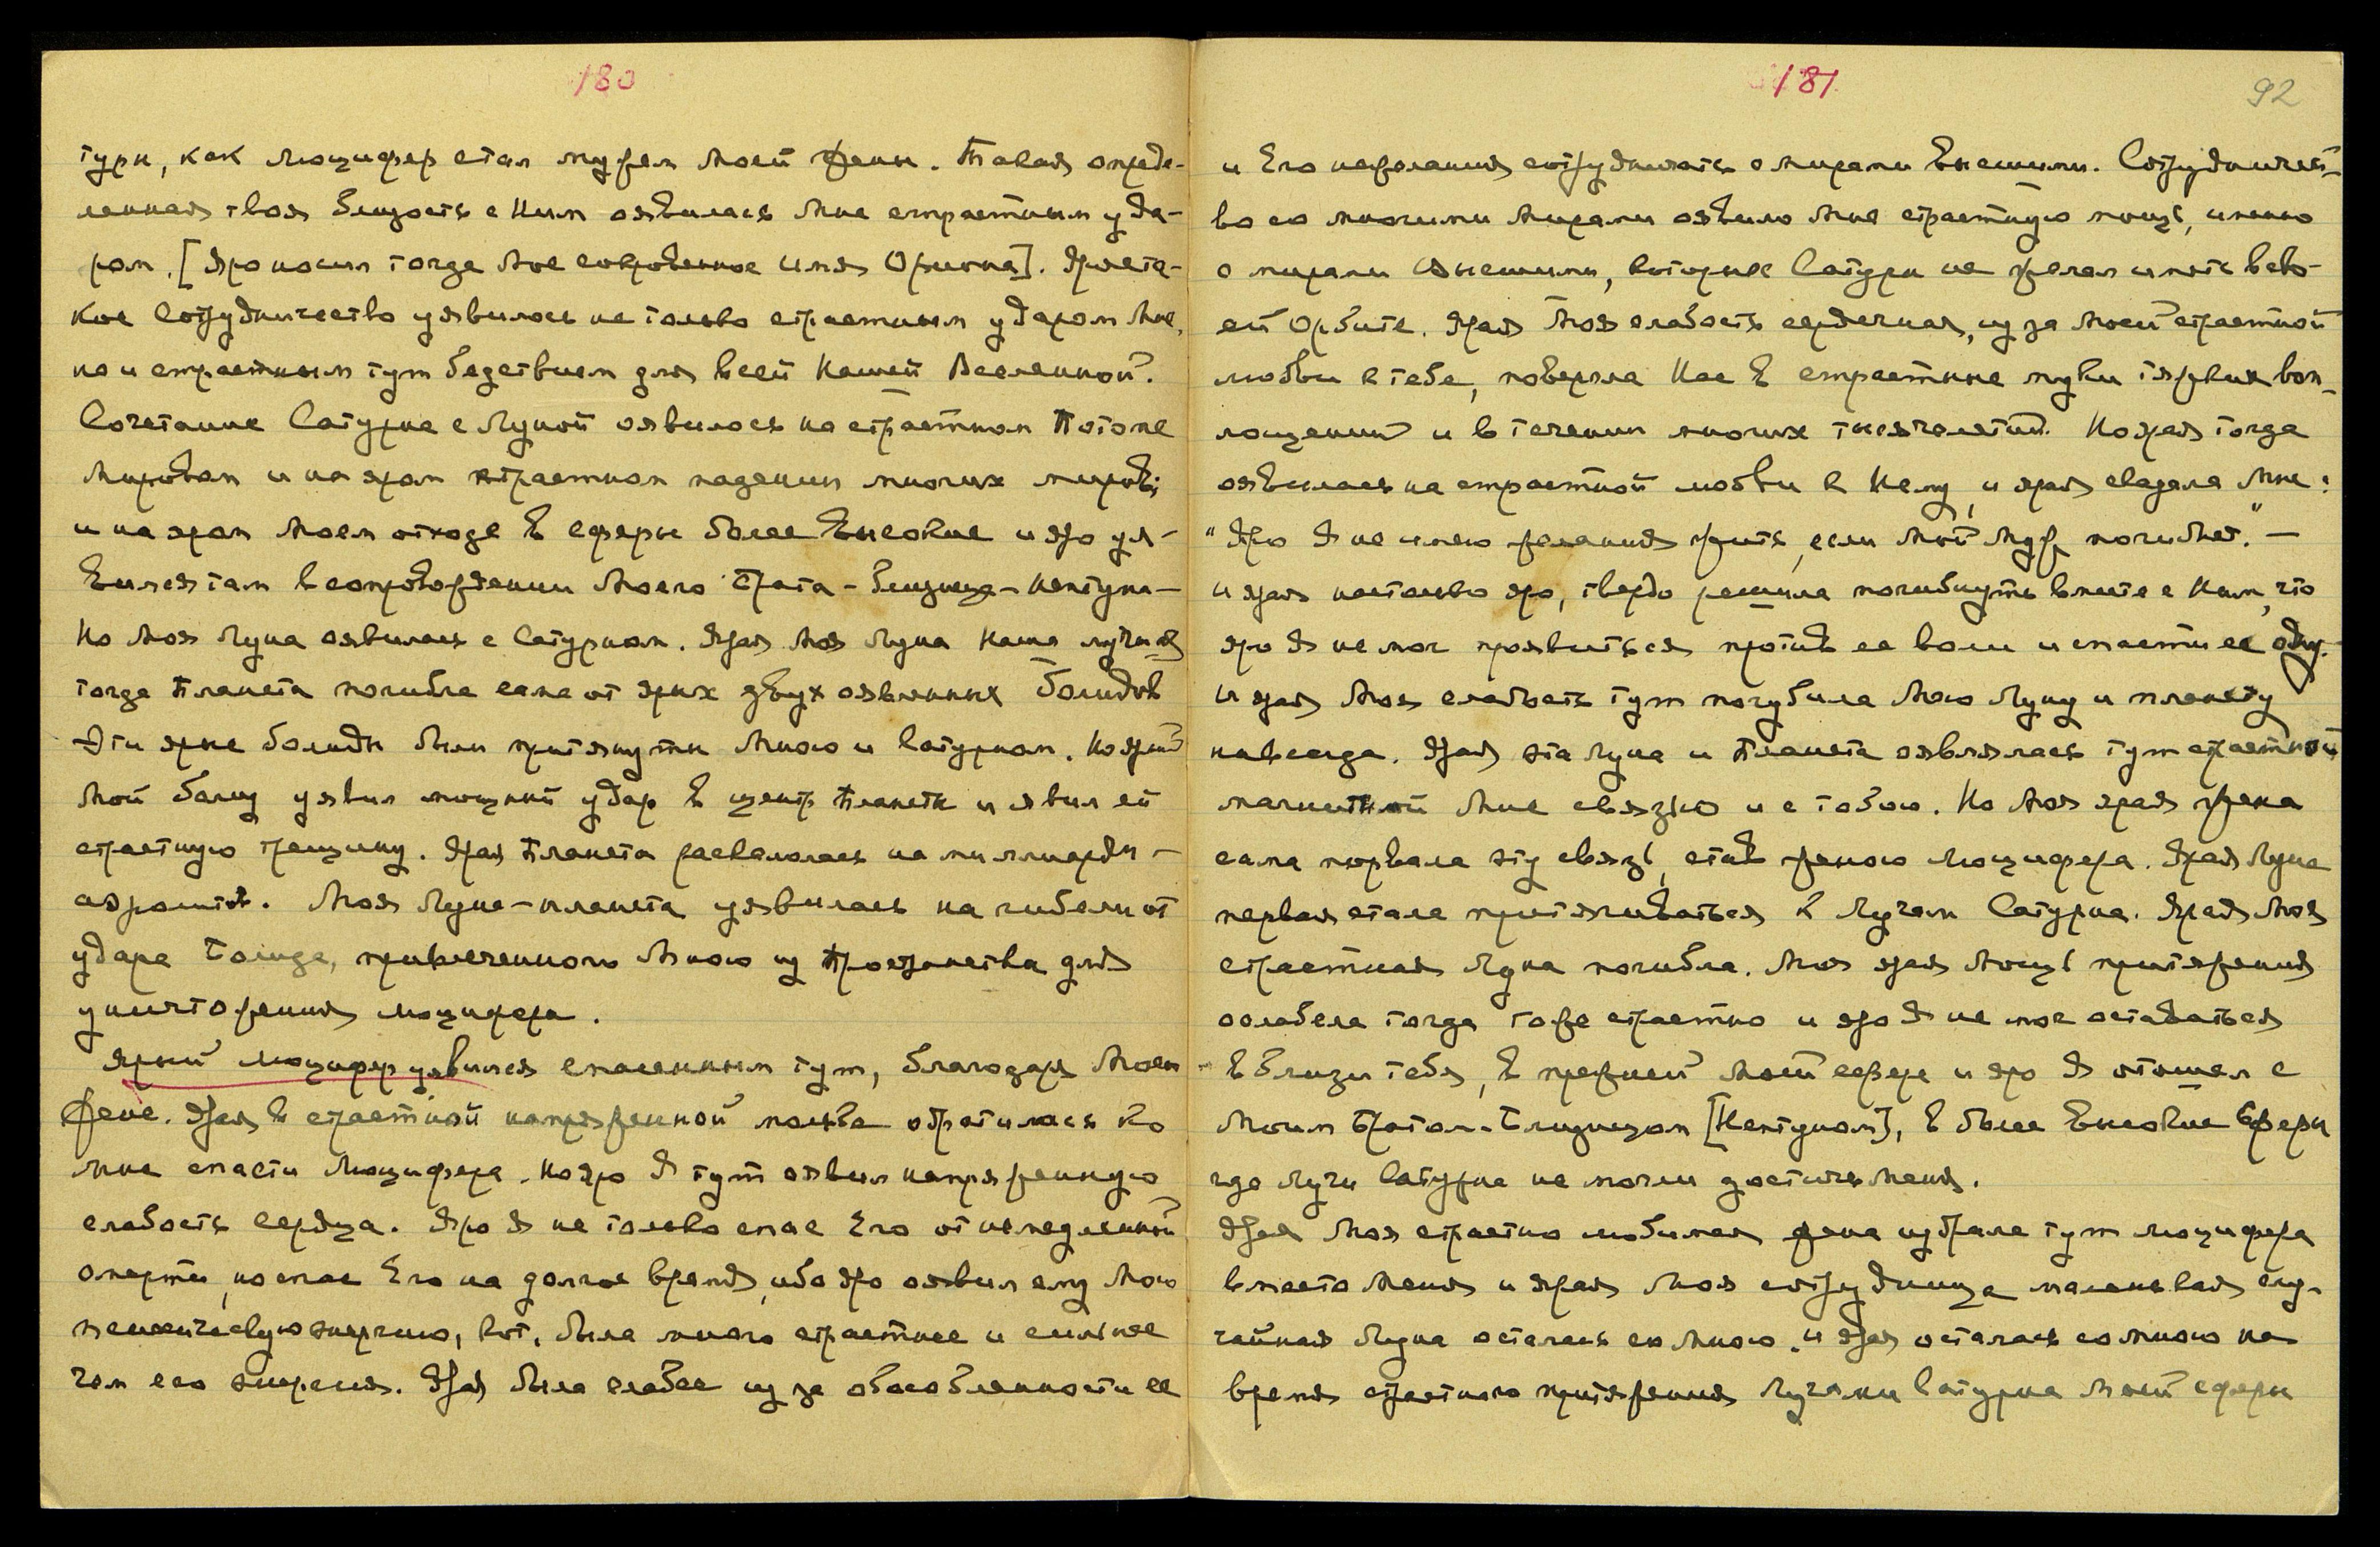 180
тури, как Люцифер стал мужем Моей жены. Такая опреде-
ленная твоя близость с Ним оявилась Мне страстным уда-
ром. [Яро носил тогда Мое сокровенное имя Ориона]. Яро та-
кое сотрудничество уявилось не только страстным ударом Мне,
но и страстным тут бедствием для всей Нашей Вселенной.
Сочетание Сатурна с Луной оявилось на страстном Потопе
Мировом и на яром страстном падении многих миров;
и на яром Моем отходе в сферы более Высокие и яро уя-
вился там в сопровождении Моего Брата-близнеца-Нептуна-
Но Моя Луна оявилась с Сатурном. Ярая Моя Луна Наша лучшая
тогда Планета погибла сама от ярых двух оявленных Болидов
Эти ярые болиды были притянуты Мною и Сатурном. Но ярый
Мой болид уявил мощный удар в центр Планеты и явил ей
страстную трещину. Ярая Планета раскололась на миллиарды-
аэролитов. Моя Луна-планета уявилась на гибели от
удара Болида, привлеченного Мною из Пространства для
уничтожения Люцифера.
Ярый Люцифер уявился спасенным тут, благодаря Моей
жене. Ярая в страстной напряженной мольбе обратилась ко
Мне спасти Люцифера. Но яро Я тут оявил напряженную
слабость сердца. Яро Я не только спас Его от немедленной
смерти, но спас Его на долгое время, ибо яро оявил ему Мою
психическую энергию, кот. была много страстнее и сильнее
чем его энергия. Ярая была слабее из за обособленности ее
181
92
и Его нежелания сотрудничать с мирами Высшими. Сотрудничест-
во со многими Мирами оявило Мне страстную мощь, именно
с мирами Высшими, которых Сатурн не желал иметь в сво-
ей Орбите. Ярая Моя слабость сердечная, из за Моей страстной
любви к тебе, повергла Нас в страстные муки тяжких воп-
лощений и в течении многих тысячелетий. Но ярая тогда
оявилась на страстной любви к Нему, и ярая сказала Мне:
"Яро Я не имею желания жить, если Мой Муж погибнет." -
и ярая настолько яро, твердо решила погибнуть вместе с Ним, что
яро Я не мог проявиться против ее воли и спасти ее одну.
И ярая Моя слабость тут погубила Мою Луну и планету
навсегда. Ярая эта Луна и Планета оявлялась тут страстной
магнитной Мне связью и с тобою. Но Моя ярая жена
сама порвала эту связь, став женою Люцифера. Ярая Луна
первая стала притягиваться к Лучам Сатурна. Ярая Моя
страстная Луна погибла. Моя ярая Мощь притяжения
ослабела тогда тоже страстно и яро Я не мог оставаться
вблизи тебя, в прежней Моей сфере и яро Я отошел с
Моим Братом-Близнецом [Нептуном], в более Высокие Сферы
где лучи Сатурна не могли достичь Меня.
Ярая Моя страстно любимая жена избрала тут Люцифера
вместо Меня и ярая Моя сотрудница маленькая слу-
чайная Луна осталась со Мною. и ярая осталась со мною на
время страстного притяжения Лучами Сатурна Моей сферы